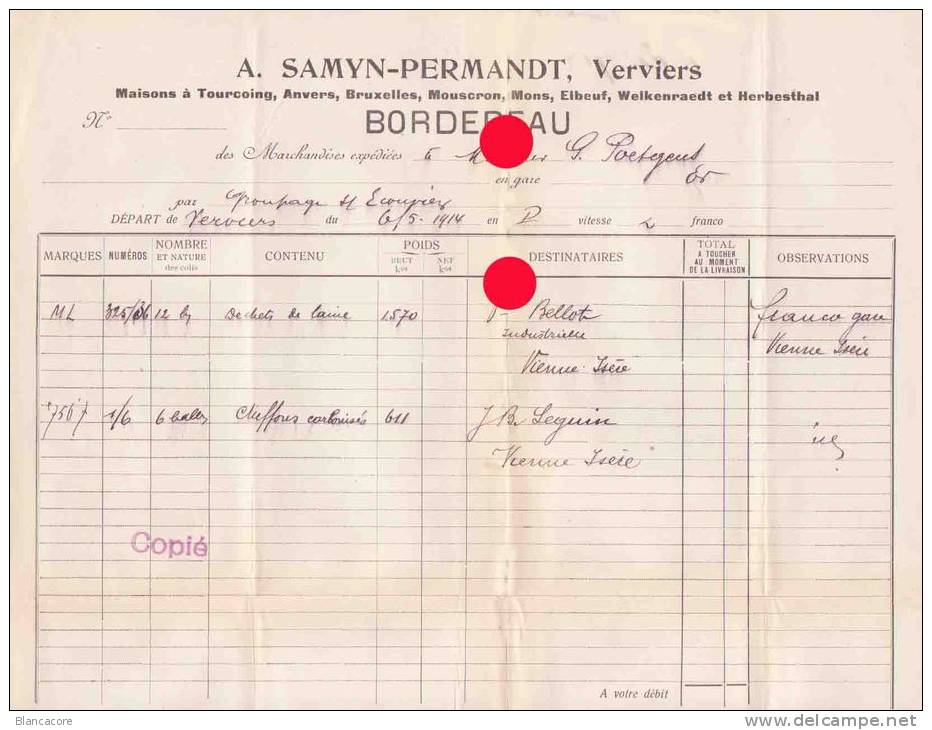 A. SAMYN-PERMANDT, Verviers
Maisons à Tourcoing, Anvers, Bruxelles, Mouscron, Mons, Elbeuf, Welkenraedt et Herbesthal
Nº
BORDEREAU
des Marchandises expédiées à G. Poetgens
en gare
par Groupage s/ Ecouviez
DÉPART de Verviers du 6/5-1914 en P vitesse franco
MARQUES NUMÉROS NOMBRE ET NATURE des colis CONTENU POIDS BRUT kos NET kos DESTINATAIRES TOTAL A TOUCHER AU MOMENT DE LA LIVRAISON OBSERVATIONS
ML 325/36 12 b/ Dechets de laine 1570 Bellot franco gare
Industrielle Vienne Isère
Vienne Isère
7567 1/6 6 balles Chiffons carbonisés 611 J B. Seguin id
Vienne Isère
Copié
A votre débit
Blancacore
www.delcampe.net